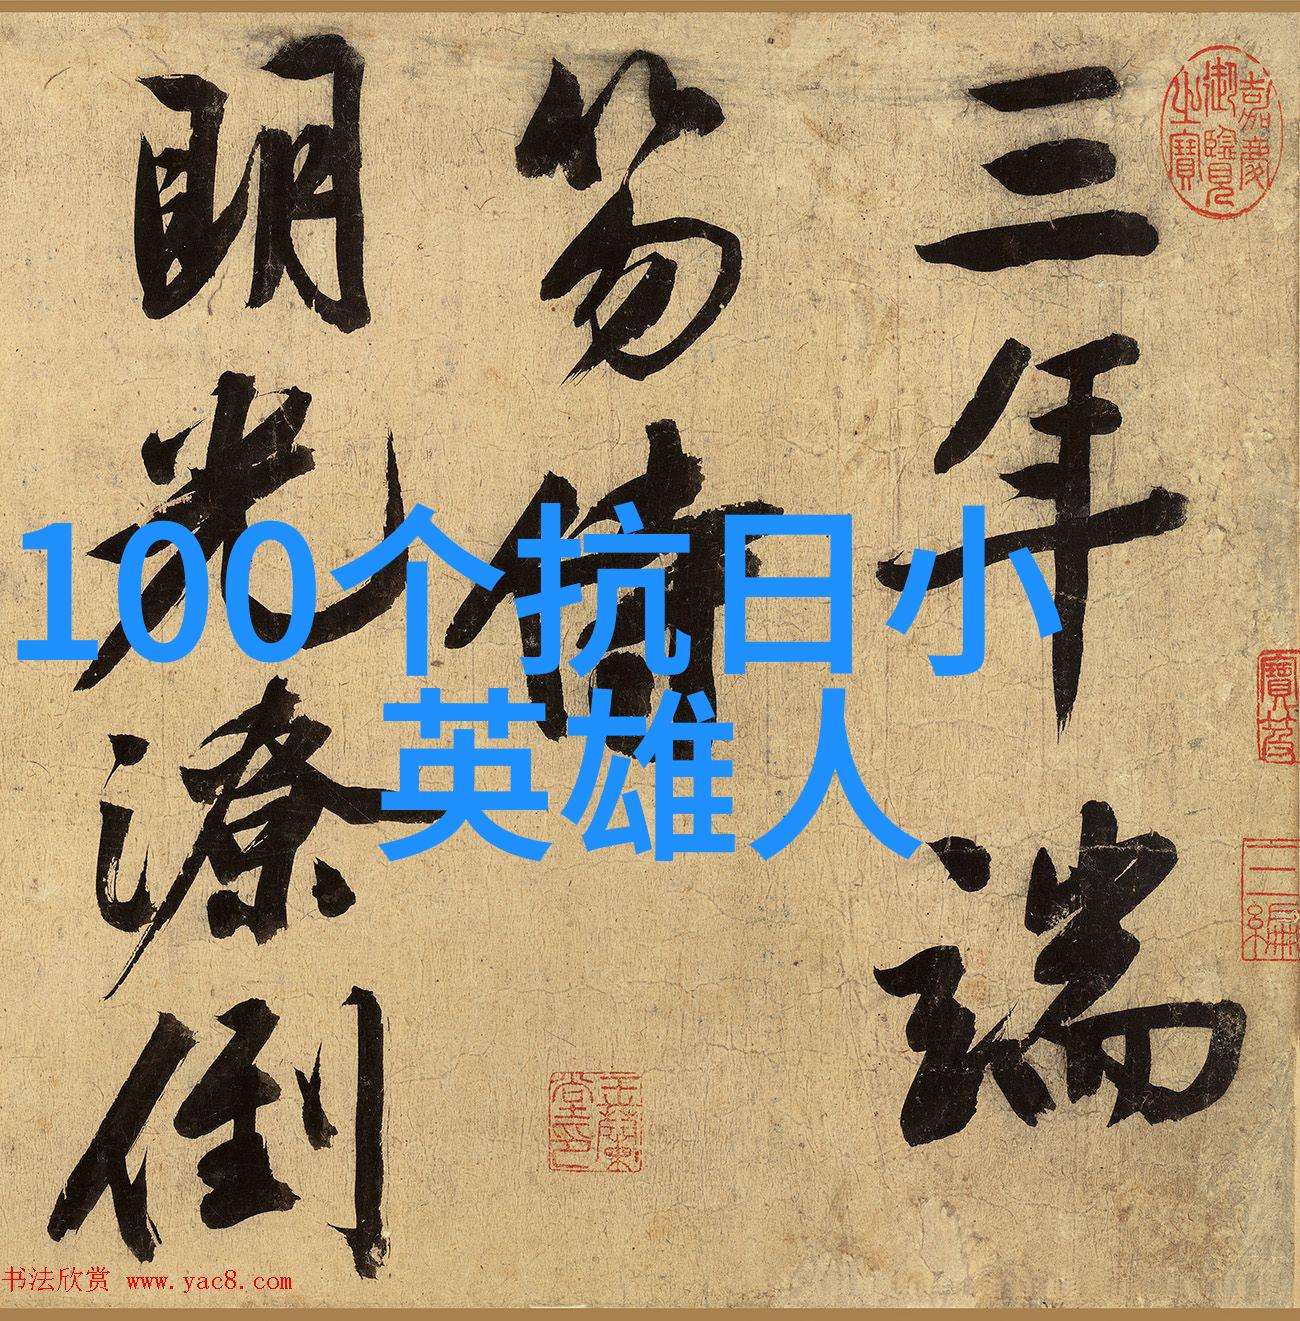 三年端
笏倩
明光潦倒
嘉慶
御覽
之寶
100个抗日小
英雄人
书法欣赏 www.yac8.com